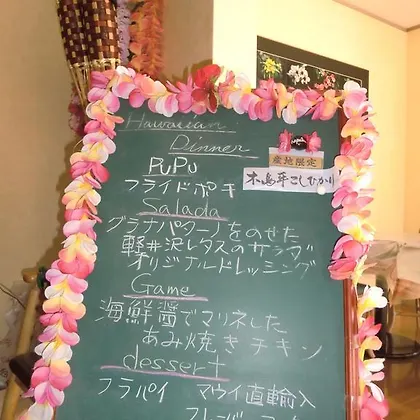 Hawaiian
Dinner
PuPu
フライドポキ
Salada
グラナパダーノをのせた
軽井沢レタスのサラダ
オリジナルドレッシング
Game
海鮮醤でマリネした
あみ焼きチキン
dessert
フラパイ マウイ直輸入
産地限定
木島平こしひかり